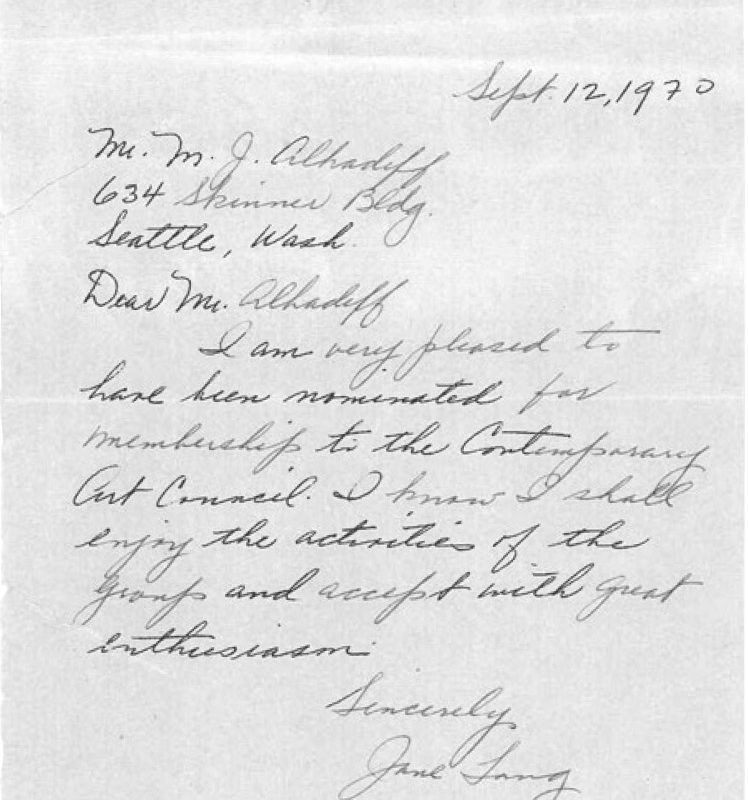 Sept. 12, 1970
Mr. M. J. Alhadeff
634 Skinner Bldg.
Seattle, Wash.
Dear Mr. Alhadeff
I am very pleased to
have been nominated for
membership to the Contemporary
Art Council. I know I shall
enjoy the activities of the
group and accept with great
enthusiasm.
Sincerely
Jane Lang